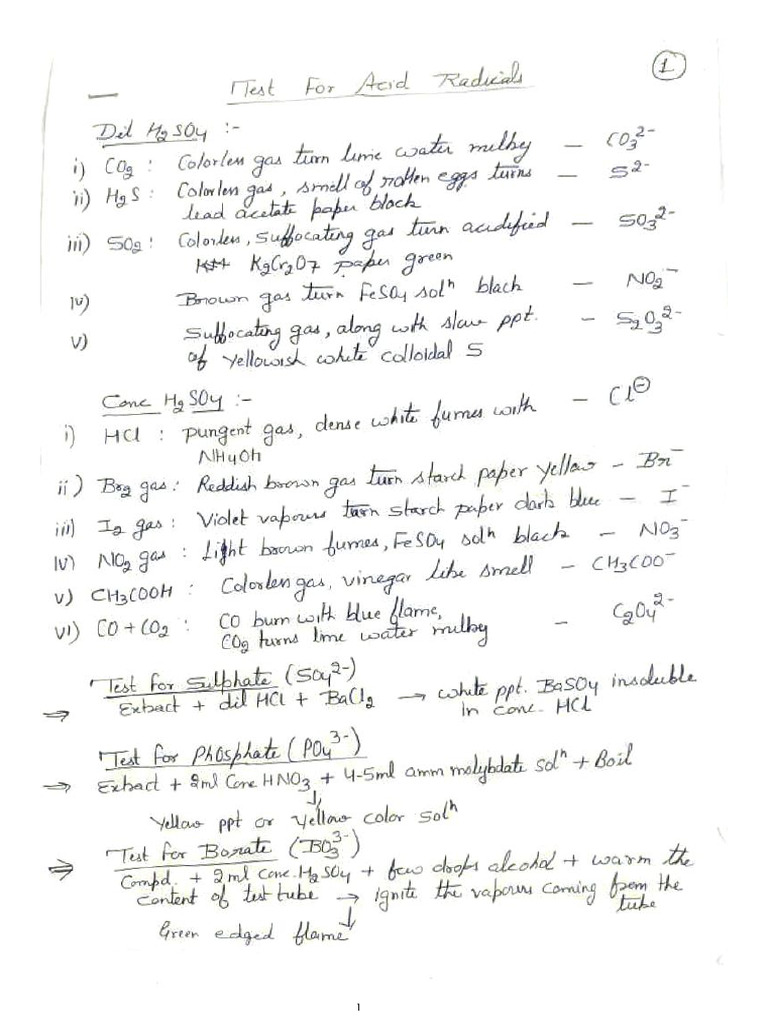 1
Test For Acid Radicals
Dil H2SO4 :-
i) CO2 : Colorless gas turn lime water milky — CO3^2-
ii) H2S : Colorless gas, smell of rotten eggs turns — S^2-
lead acetate paper black
iii) SO2 : Colorless, suffocating gas turn acidified — SO3^2-
K2Cr2O7 paper green
iv) Brown gas turn FeSO4 solⁿ black — NO2^-
v) Suffocating gas, along with slow ppt. — S2O3^2-
of yellowish white colloidal S
Conc H2SO4 :-
i) HCl : pungent gas, dense white fumes with — Cl^⊖
NH4OH
ii) Br2 gas : Reddish brown gas turn starch paper yellow — Br^-
iii) I2 gas : Violet vapours turn starch paper dark blue — I^-
iv) NO2 gas : Light brown fumes, FeSO4 solⁿ black — NO3^-
v) CH3COOH : Colorless gas, vinegar like smell — CH3COO^-
vi) CO + CO2 : CO burn with blue flame, — C2O4^2-
CO2 turns lime water milky
Test for Sulphate (SO4^2-)
⇒ Extract + dil HCl + BaCl2 → white ppt. BaSO4 insoluble
in conc. HCl
Test for Phosphate (PO4^3-)
⇒ Extract + 2ml Conc HNO3 + 4-5ml amm molybdate solⁿ + Boil
↓
Yellow ppt or yellow color solⁿ
Test for Borate (BO3^3-)
⇒ Compd. + 2ml conc. H2SO4 + few drops alcohol + warm the
content of test tube → ignite the vapours coming from the
tube
↓
Green edged flame
1